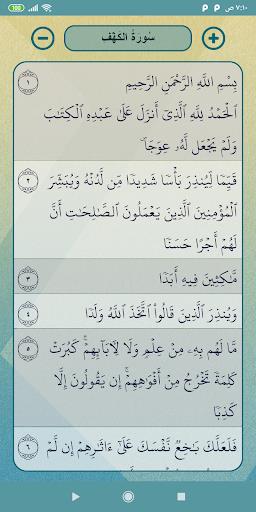 100 ٧:١٠ ص
سُورَةُ الكَهْف
١
بِسْمِ اللَّهِ الرَّحْمَٰنِ الرَّحِيمِ
الْحَمْدُ لِلَّهِ الَّذِي أَنزَلَ عَلَىٰ عَبْدِهِ الْكِتَابَ
وَلَمْ يَجْعَل لَّهُ عِوَجًا ۜ
٢
قَيِّمًا لِّيُنذِرَ بَأْسًا شَدِيدًا مِّن لَّدُنْهُ وَيُبَشِّرَ
الْمُؤْمِنِينَ الَّذِينَ يَعْمَلُونَ الصَّالِحَاتِ أَنَّ
لَهُمْ أَجْرًا حَسَنًا
٣
مَّاكِثِينَ فِيهِ أَبَدًا
٤
وَيُنذِرَ الَّذِينَ قَالُوا اتَّخَذَ اللَّهُ وَلَدًا
٥
مَّا لَهُم بِهِ مِنْ عِلْمٍ وَلَا لِآبَائِهِمْ ۚ كَبُرَتْ
كَلِمَةً تَخْرُجُ مِنْ أَفْوَاهِهِمْ ۚ إِن يَقُولُونَ إِلَّا
كَذِبًا
٦
فَلَعَلَّكَ بَاخِعٌ نَّفْسَكَ عَلَىٰ آثَارِهِمْ إِن لَّمْ